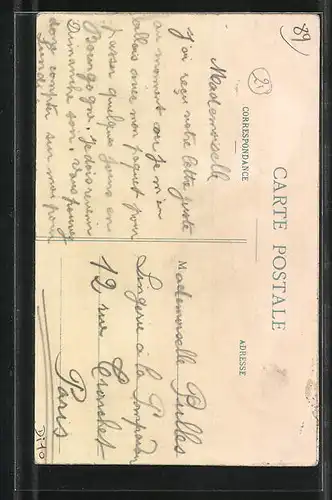 CARTE POSTALE
CORRESPONDANCE
ADRESSE
89
21
Mademoiselle
J'ai reçu votre lettre juste
au moment où je m'en
allais avec mon paquet pour
passer quelques jours en
Bourgogne. je dois revenir
Dimanche soir. Vous pouvez
donc compter sur moi pour
Lundi
Mademoiselle Bulles
Lingerie à la
12 rue Tronchet
Paris